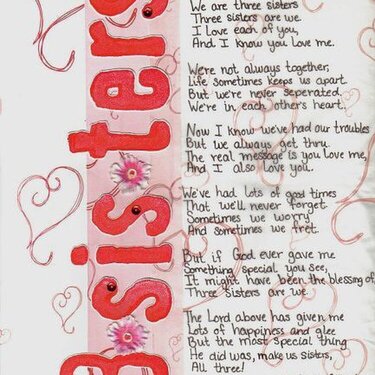 3 sisters
We are three sisters
Three sisters are we.
I Love each of you,
And I know you love me.
We're not always together,
Life sometimes keeps us apart
But we're never seperated.
We're in each other's heart.
Now I know we've had our troubles
But we always get thru.
The real message is you love me,
And I also love you.
We've had lots of good times
That we'll never forget.
Sometimes we worry
And sometimes we fret.
But if God ever gave me
Something special you see,
It might have been the blessing of,
Three sisters are we.
The Lord above has given me
Lots of happiness and glee
But the most special thing
He did was, make us sisters,
All three!